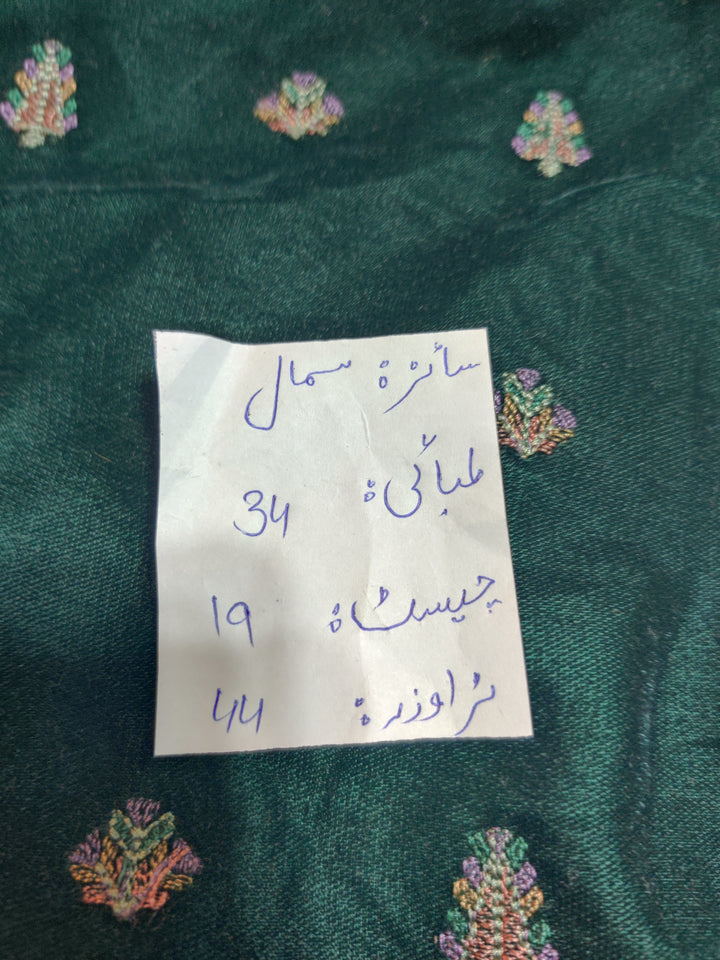 سائز: سمال
لمبائی: 34
چیسٹ: 19
ٹراوزر: 44